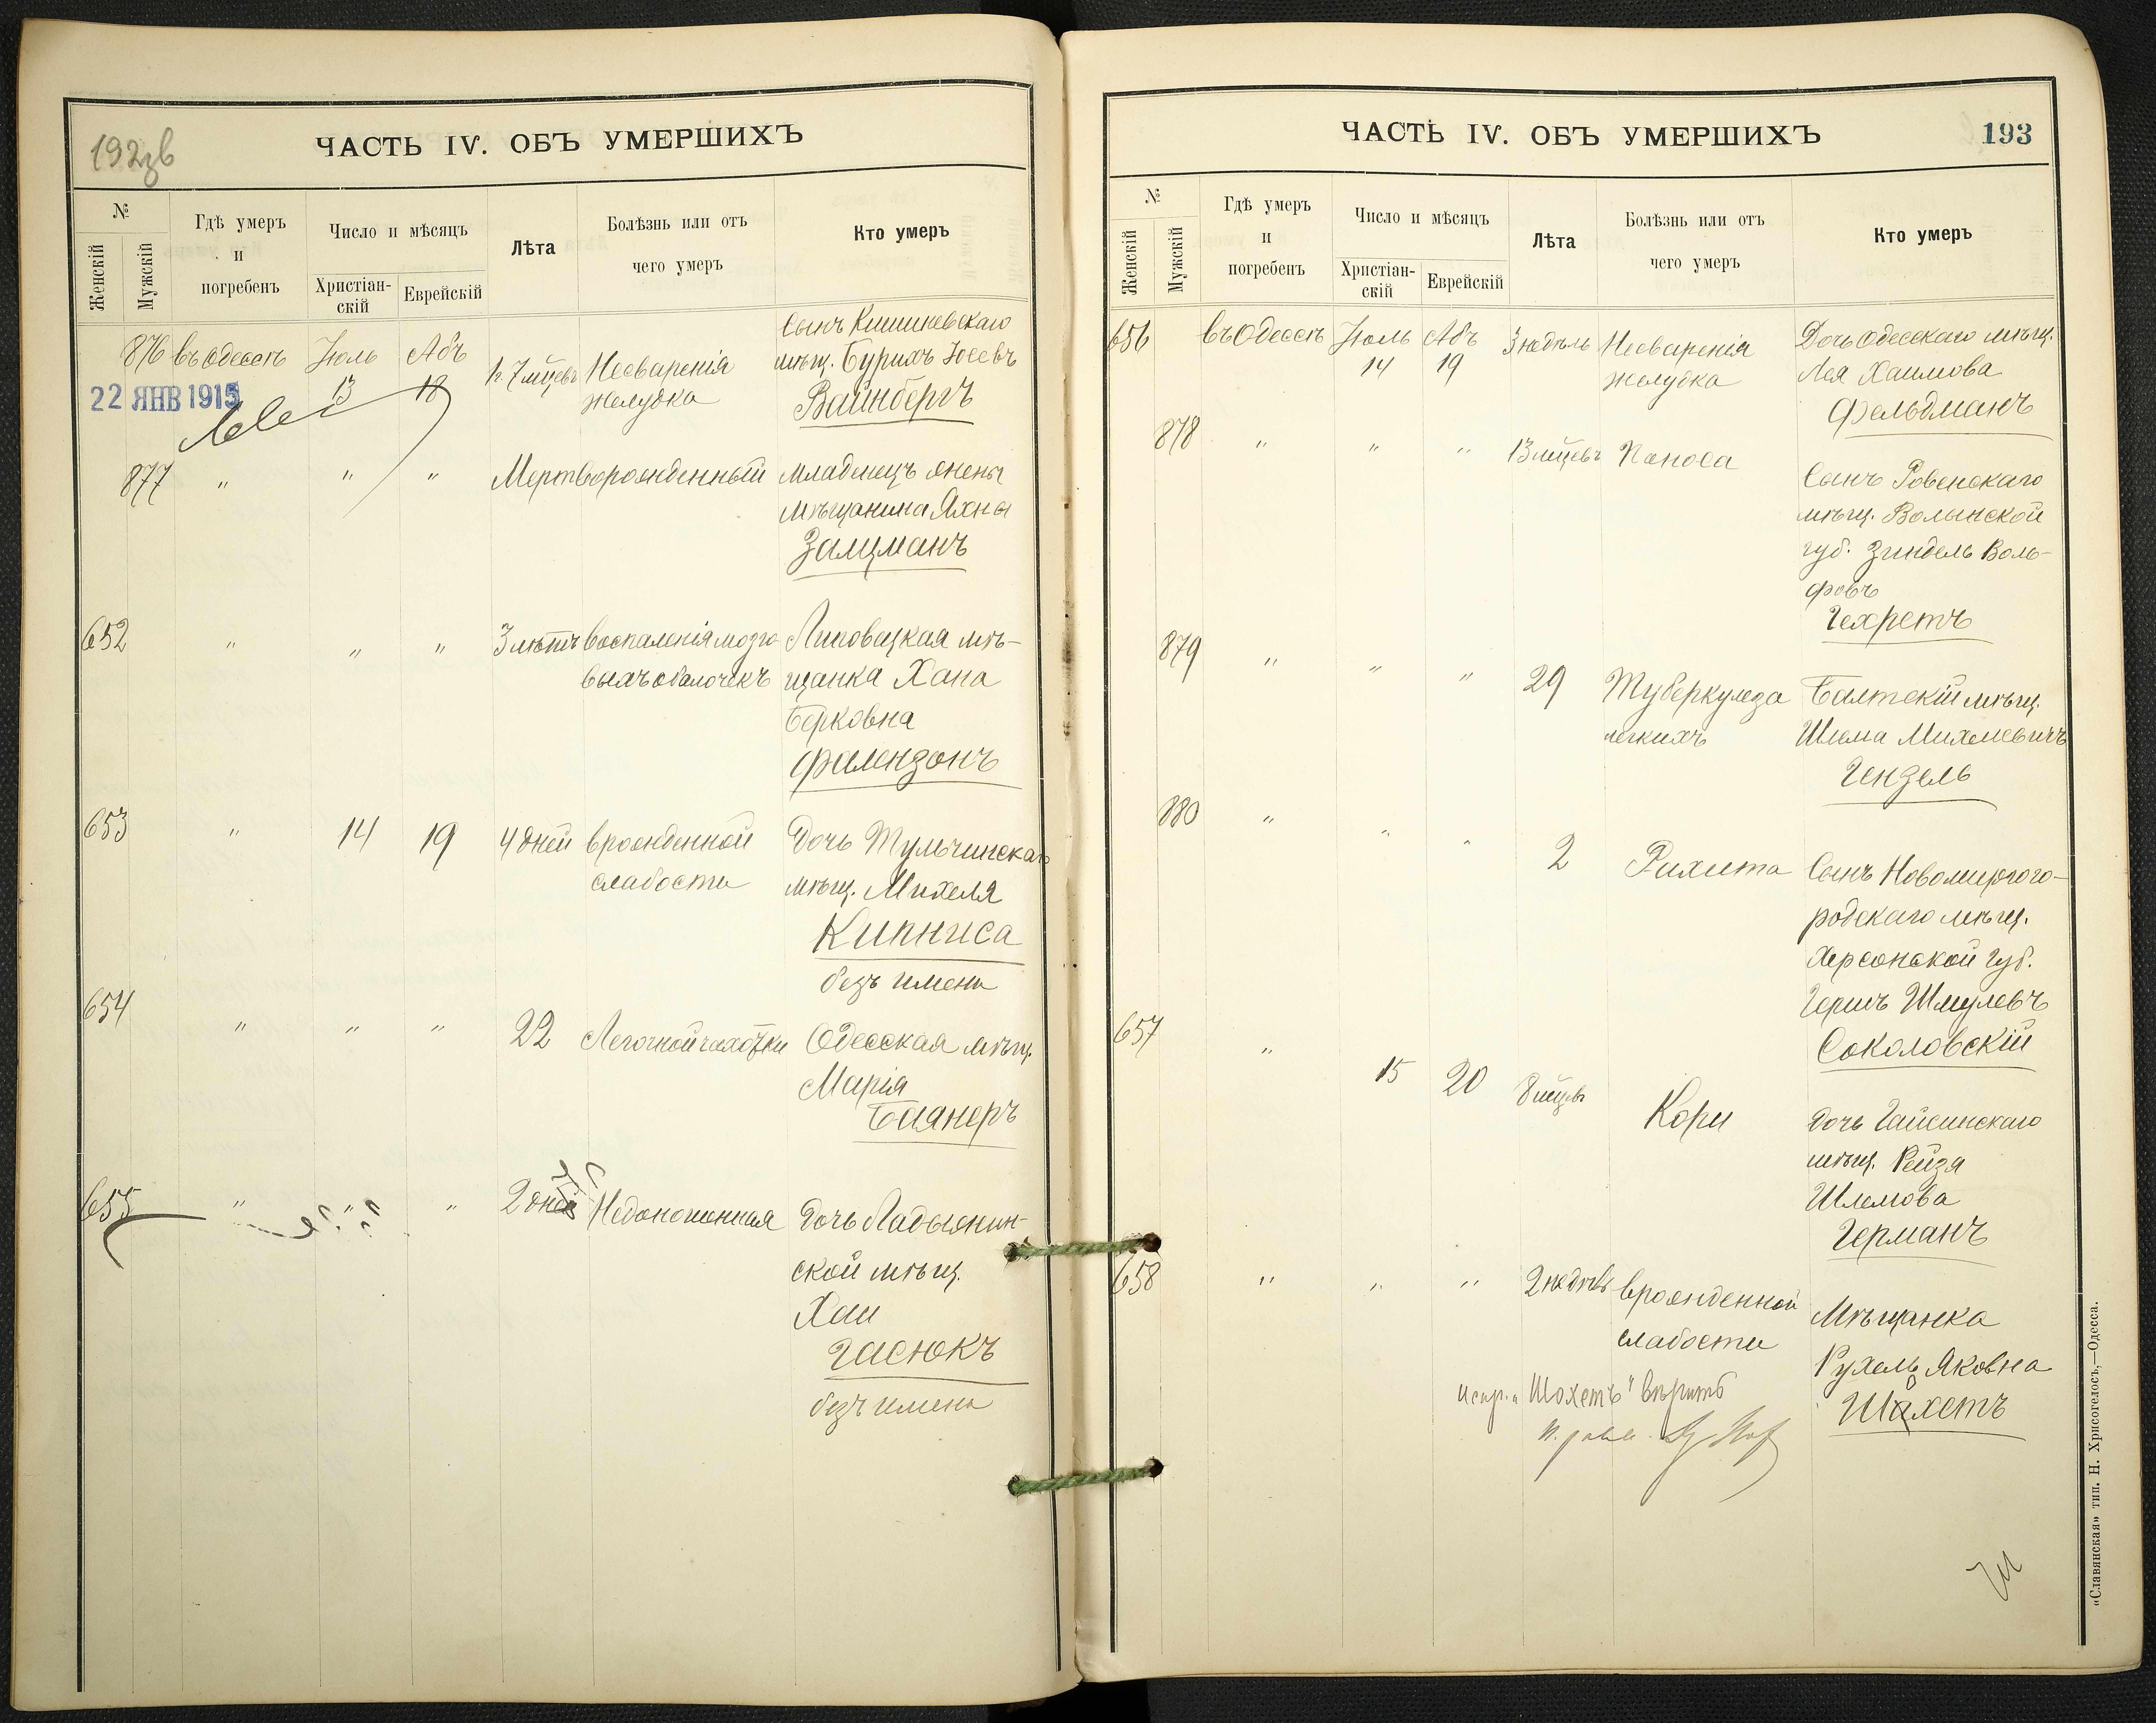 192зв
ЧАСТЬ IV. ОБЪ УМЕРШИХЪ
№
Женскій
Мужскій
Гдѣ умеръ
и
погребенъ
Число и мѣсяцъ
Христіан-
скій
Еврейскій
Лѣта
Болѣзнь или отъ
чего умеръ
Кто умеръ
876 въ Одессѣ Іюль 13 Абъ 18 1г. 7 мѣцевъ Несваренія
желудка
Сынъ Кишиневскаго
мѣщ. Бурихъ Іосевъ
Вайнбергъ
22 ЯНВ 1915
877 " " " Мертворожденный младенецъ жены
мѣщанина Яхны
Залцманъ
652 " " " 3 лѣтъ воспаленія мозго-
выхъ оболочекъ
Липовацкая мѣ-
щанка Хана
Берковна
Фалензонъ
653 " 14 19 4 дней врожденной
слабости
Дочь Тульчинскаго
мѣщ. Михеля
Кипниса
безъ имени
654 " " " 22 Легочной чахотки Одесская мѣщ.
Марія
Баянеръ
655 " " " 2 дней Недоношенная Дочь Ладыжин-
ской мѣщ.
Хаи
Гасюкъ
безъ имени
ЧАСТЬ IV. ОБЪ УМЕРШИХЪ
193
№
Женскій
Мужскій
Гдѣ умеръ
и
погребенъ
Число и мѣсяцъ
Христіан-
скій
Еврейскій
Лѣта
Болѣзнь или отъ
чего умеръ
Кто умеръ
656 въ Одессѣ Іюль 14 Абъ 19 3 недѣль Несваренія
желудка
Дочь Одесскаго мѣщ.
Лея Хаимова
Фельдманъ
878 " " " 13 мѣцевъ Поноса
Сынъ Ровенскаго
мѣщ. Волынской
губ. Зиндель Воль-
фовъ
Гехретъ
879 " " " 29 Туберкулеза
легкихъ
Балтскій мѣщ.
Шлема Михелевичъ
Гензель
880 " " " 2 Рахита Сынъ Новомиргого-
родскаго мѣщ.
Херсонской губ.
Гершъ Шмулевъ
Соколовскій
657 " 15 20 8 мѣцевъ Кори Дочь Гайсинскаго
мѣщ. Рейза
Шлемова
Германъ
658 " " " 2 недѣль врожденной
слабости
Мѣщанка
Рухель Яковна
Шохетъ
испр. "Шохетъ" вѣрить
«Славянская» тип. Н. Хрисогелосъ,—Одесса.